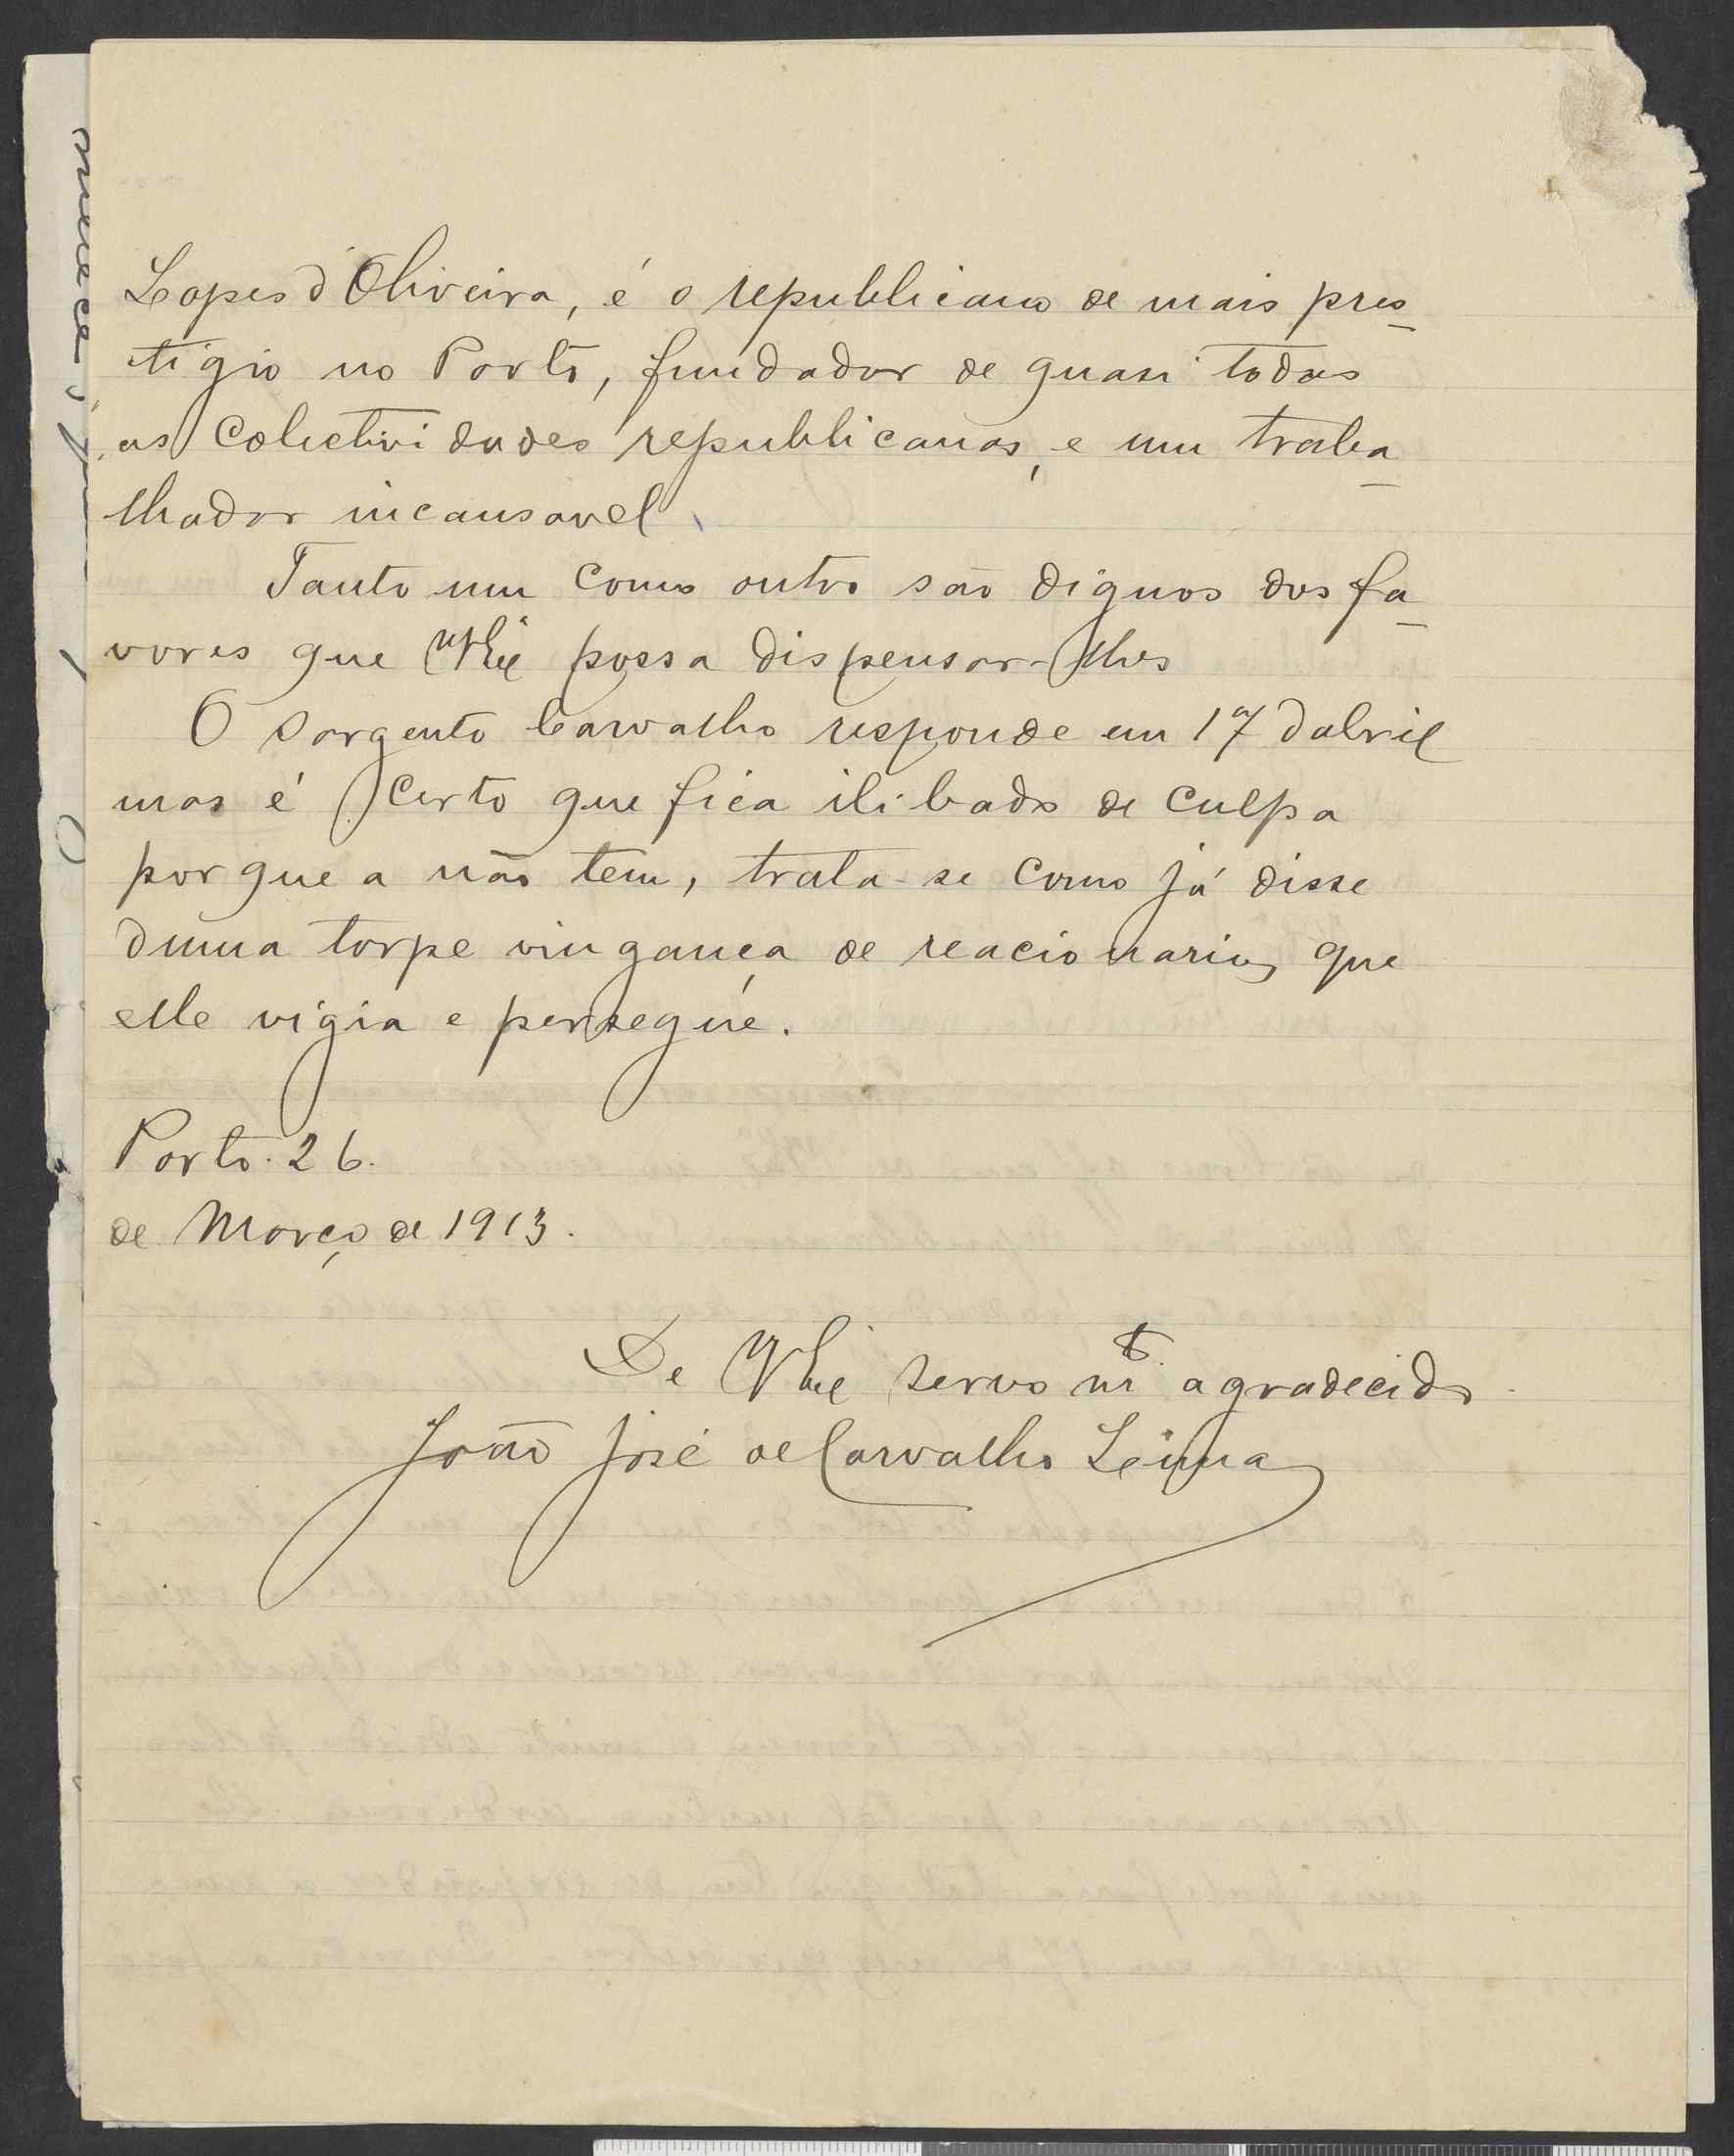 Lopes d'Oliveira, é o republicano de mais pres
tigio no Porto, fundador de quasi todas
as colectividades republicanas, e um traba
lhador incansavel.
Tanto um como outro são dignos dos fa
vores que VExª possa dispensar-lhes
O sargento Carvalho responde em 17 dabril
mas é certo que fica ilibado de culpa
porque a não tem, trata-se como já disse
duma torpe vingança de reacionarios que
elle vigia e persegue.
Porto. 26.
de Março de 1913.
De VExª servo mtº agradecido
João José de Carvalho Lima